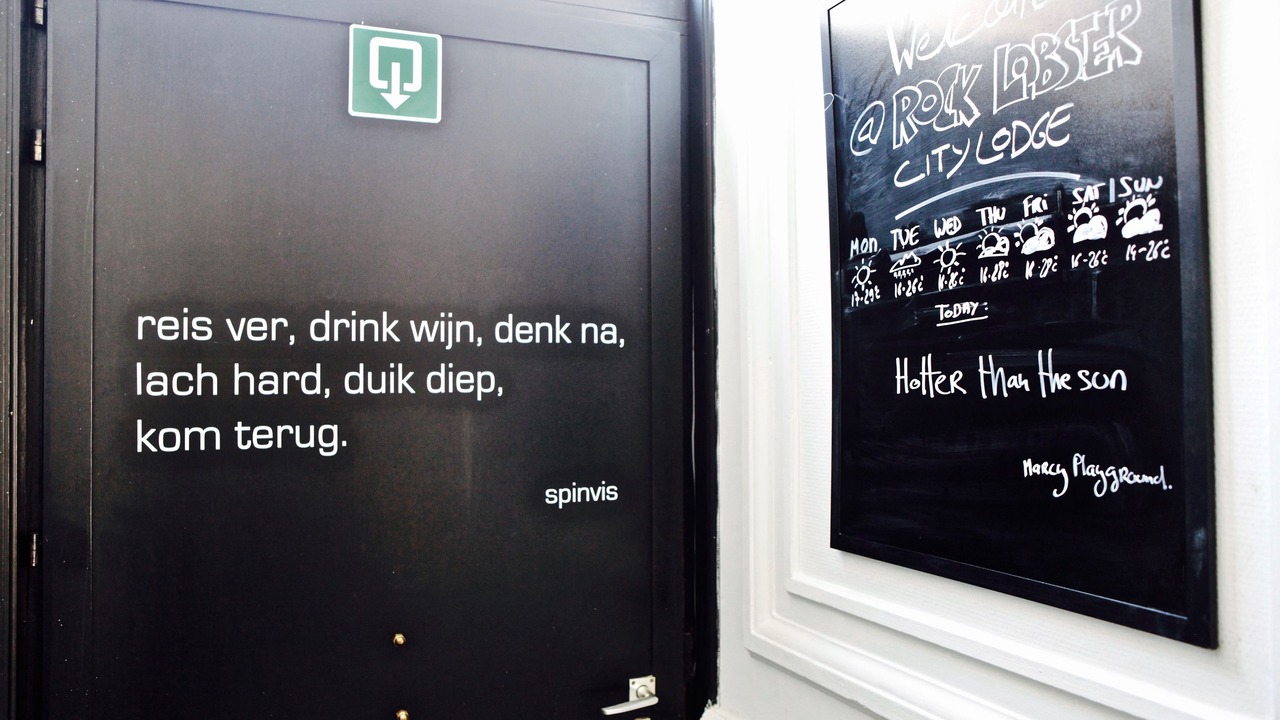 reis ver, drink wijn, denk na,
lach hard, duik diep,
kom terug.
spinvis
Welcome
@ ROCK LOBSTER
CITY LODGE
MON TUE WED THU FRI SAT | SUN
16-26c 14-26c
TODAY:
Hotter than the sun
Marcy Playground.